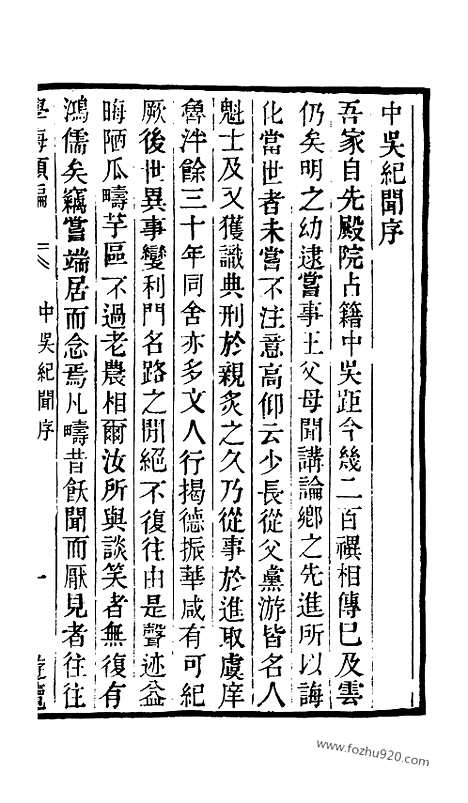 中吳紀聞序
吾家自先殿院占籍中吳距今幾二百禩相傳已及雲
仍矣明之幼逮嘗事王父母聞講論鄉之先進所以誨
化當世者未嘗不注意高仰云少長從父黨游皆名人
魁士及又獲識典刑於親炙之久乃從事於進取虞庠
魯泮餘三十年同舍亦多文人行揭德振華咸有可紀
厥後世異事變利門名路之閒絕不復往由是聲迹益
晦陋瓜疇芋區不過老農相爾汝所與談笑者無復有
鴻儒矣竊嘗端居而念焉凡疇昔飫聞而厭見者往往
學海類編
中吳紀聞序
一
www.fozhu920.com